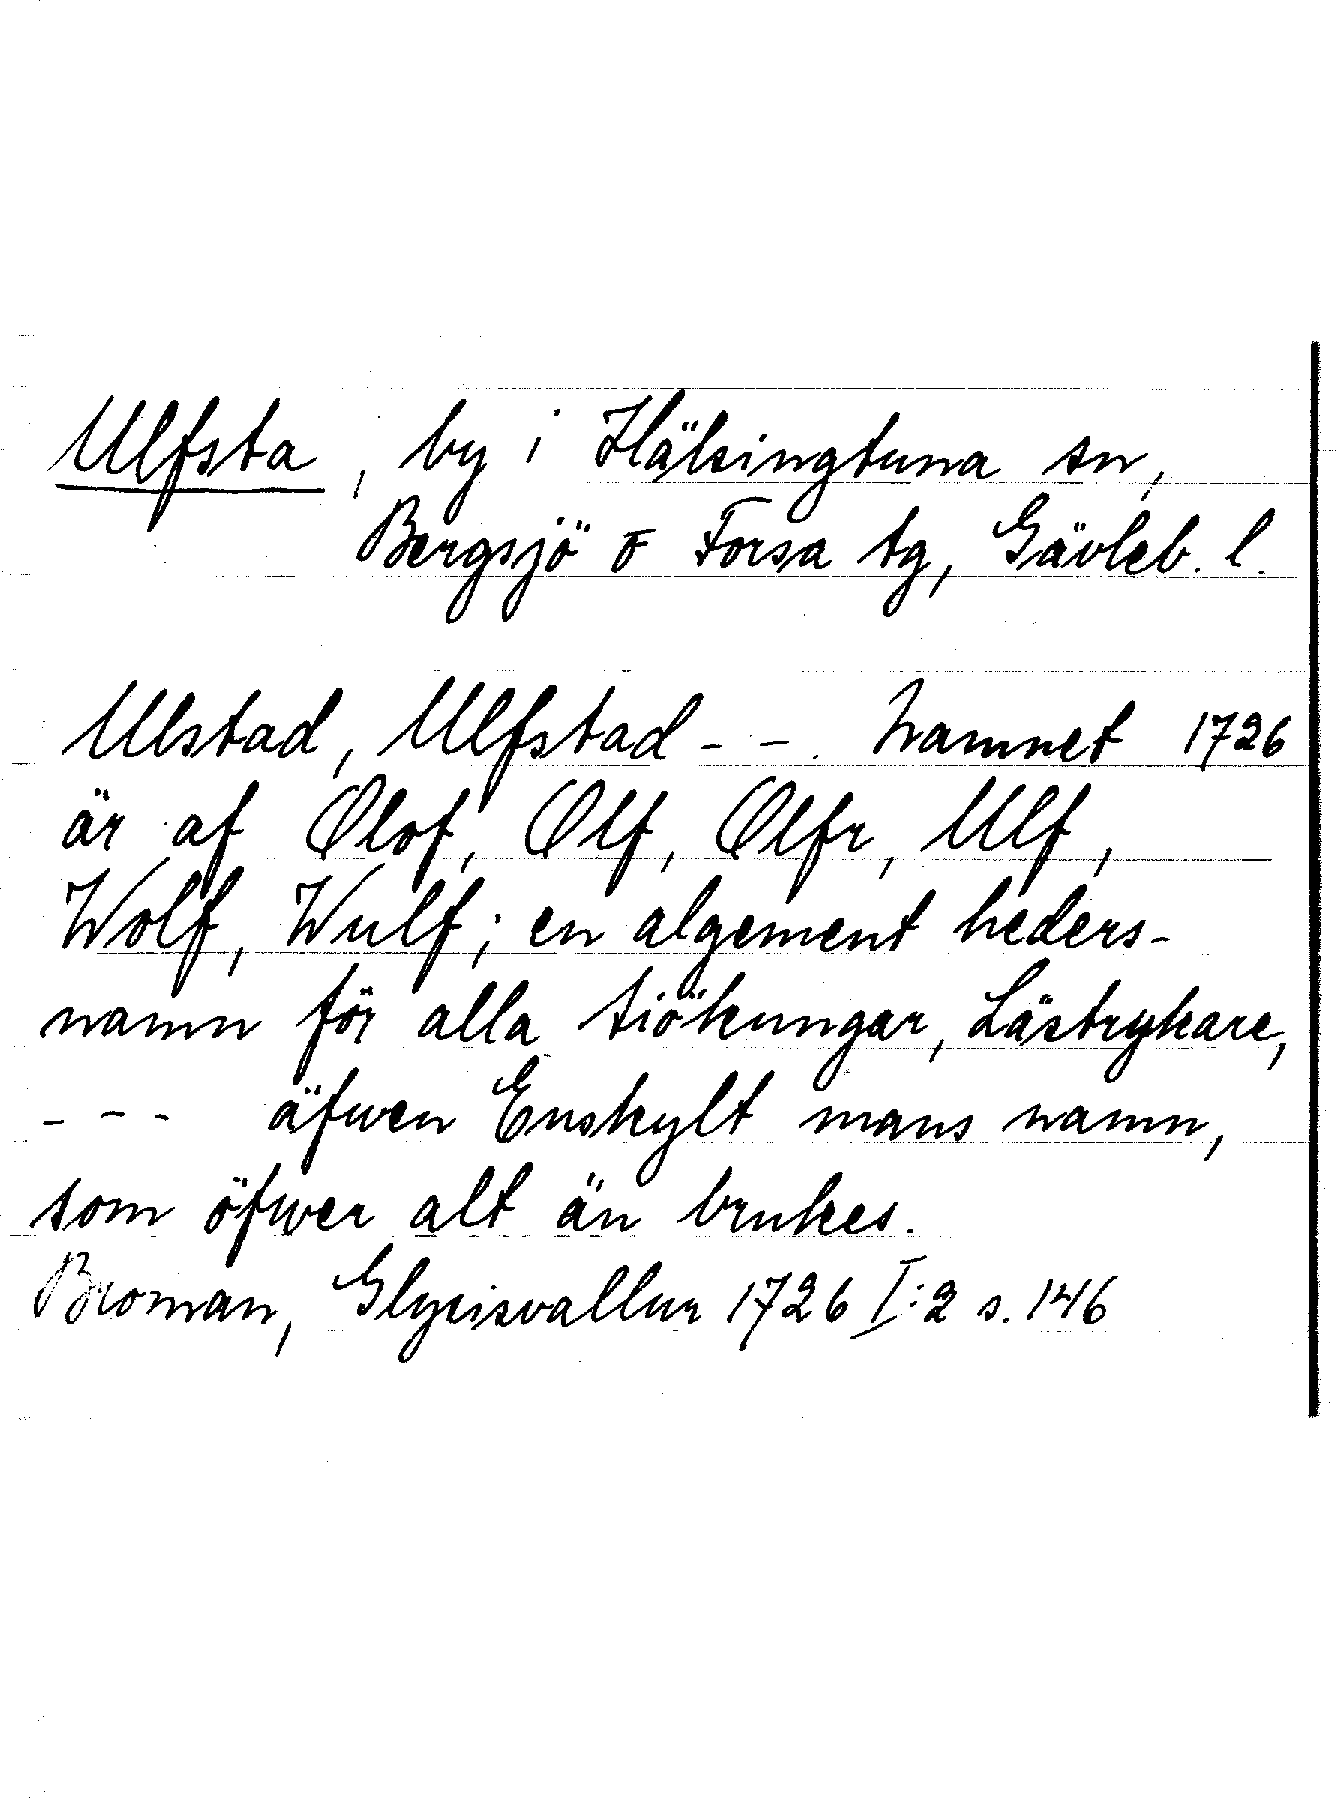 Ulfsta, by i Hälsingtuna sn,
Bergsjö o Forsa tg, Gävleb. l.
Ulstad, Ulfstad - - . Namnet 1726
är af Olof, Olf, Olfr, Ulf,
Wolf, Wulf; en algement heders-
namn för alla siökungar, Lästrykare,
- - - äfwen Enskylt mans namn,
som öfwer alt än brukes.
Broman, Glysisvallur 1726 I:2 s. 146